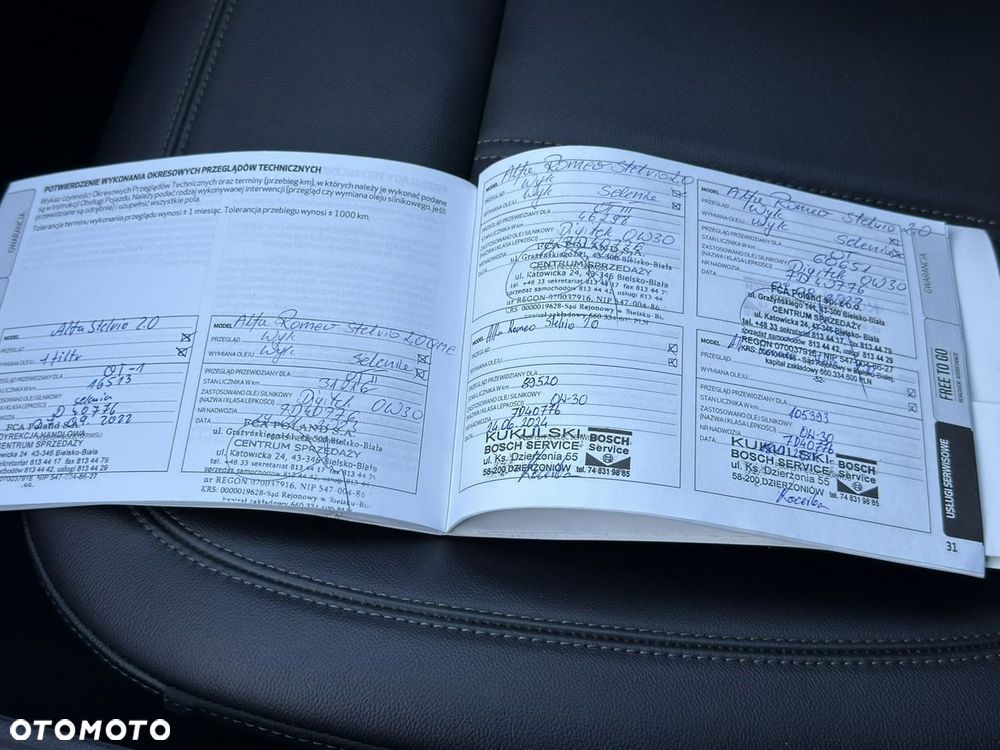 POTWIERDZENIE WYKONANIA OKRESOWYCH PRZEGLĄDÓW TECHNICZNYCH
Wykaz czynności Okresowych Przeglądów Technicznych oraz terminy (przebieg km), w których należy je wykonać podane
są w Instrukcji Obsługi Pojazdu. Należy podać rodzaj wykonywanej interwencji (przegląd czy wymiana oleju silnikowego, jeśli
przewidziane są odrębnie) i uzupełnić wszystkie pola.
Tolerancja terminu wykonania przeglądu wynosi ± 1 miesiąc. Tolerancja przebiegu wynosi ± 1000 km.
GWARANCJA
Alfa Stelvio 2.0
PRZEGLĄD
WYMIANA OLEJU + filtr
PRZEGLĄD PRZEWIDZIANY DLA OT-1
STAN LICZNIKA W km 16513
selenia
7D40776
09.2022
FCA Poland S.A.
DYREKCJA HANDLOWA
CENTRUM SPRZEDAŻY
Katowicka 24, 43-346 Bielsko-Biała
MODEL Alfa Romeo Stelvio 2.0 GME
PRZEGLĄD Wyk
WYMIANA OLEJU Wyk. Selenia
PRZEGLĄD PRZEWIDZIANY DLA OT II
STAN LICZNIKA W km
ZASTOSOWANO OLEJ SILNIKOWY Digitek 0W30
(NAZWA I KLASA LEPKOŚCI)
NR NADWOZIA 7D40776
DATA
FCA POLAND S.A.
ul. Grażyńskiego 141, 43-300 Bielsko-Biała
CENTRUM SPRZEDAŻY
ul. Katowicka 24, 43-346 Bielsko-Biała
tel. +48 33 sekretariat 813 44 17 fax 813 4
sprzedaż samochodów 813 44 42, usługi 813 4
nr REGON 070037916, NIP 547-004-86
KRS: 0000019628-Sąd Rejonowy w Bielsku-Bi
MODEL Alfa Romeo Stelvio 2.0
PRZEGLĄD Wyk
WYMIANA OLEJU Wyk Selenia
PRZEGLĄD PRZEWIDZIANY DLA OT III
STAN LICZNIKA W km 46298
ZASTOSOWANO OLEJ SILNIKOWY Digitek 0W30
(NAZWA I KLASA LEPKOŚCI)
NR NADWOZIA
DATA
FCA POLAND S.A.
ul. Grażyńskiego 141, 43-300 Bielsko-Biała
CENTRUM SPRZEDAŻY
ul. Katowicka 24, 43-346 Bielsko-Biała
tel. +48 33 sekretariat 813 44 17 fax 813 44
sprzedaż samochodów 813 44 42, usługi 813 44
nr REGON 070037916, NIP 547-004-86
KRS: 0000019628-Sąd Rejonowy w Bielsku-Bia
MODEL Alfa Romeo Stelvio 2.0
PRZEGLĄD
WYMIANA OLEJU
PRZEGLĄD PRZEWIDZIANY DLA
STAN LICZNIKA W km 89520
ZASTOSOWANO OLEJ SILNIKOWY
(NAZWA I KLASA LEPKOŚCI) 0W-30
NR NADWOZIA 7D40776
DATA 24.06.2024
KUKULSKI
BOSCH SERVICE
ul. Ks. Dzierżonia 55
58-200 DZIERŻONIÓW
BOSCH
Service
tel. 74 831 98 85
MODEL Alfa Romeo Stelvio 2.0
PRZEGLĄD Wyk
WYMIANA OLEJU Wyk Selenia
PRZEGLĄD PRZEWIDZIANY DLA
STAN LICZNIKA W km
ZASTOSOWANO OLEJ SILNIKOWY Digitek 0W30
(NAZWA I KLASA LEPKOŚCI)
NR NADWOZIA 7D40776
DATA
FCA Poland
ul. Grażyńskiego 141, 43-300 Bielsko-Biała
CENTRUM SPRZEDAŻY
ul. Katowicka 24, 43-346 Bielsko-Biała
tel. +48 33 sekretariat 813 44 17, fax 813 44 79
sprzedaż samochodów 813 44 42, usługi 813 44 29
REGON 070037916, NIP 547-004-86-27
kapitał zakładowy 660.334.600 PLN
-52-
MODEL
PRZEGLĄD
WYMIANA OLEJU
PRZEGLĄD PRZEWIDZIANY DLA
STAN LICZNIKA W km 105393
ZASTOSOWANO OLEJ SILNIKOWY
(NAZWA I KLASA LEPKOŚCI) 0W-30
NR NADWOZIA 7D40776
DATA
KUKULSKI
BOSCH SERVICE
ul. Ks. Dzierżonia 55
58-200 DZIERŻONIÓW
BOSCH
Service
tel. 74 831 98 85
GWARANCJA
FREE TO GO
USŁUGI SERWISOWE
31
OTOMOTO